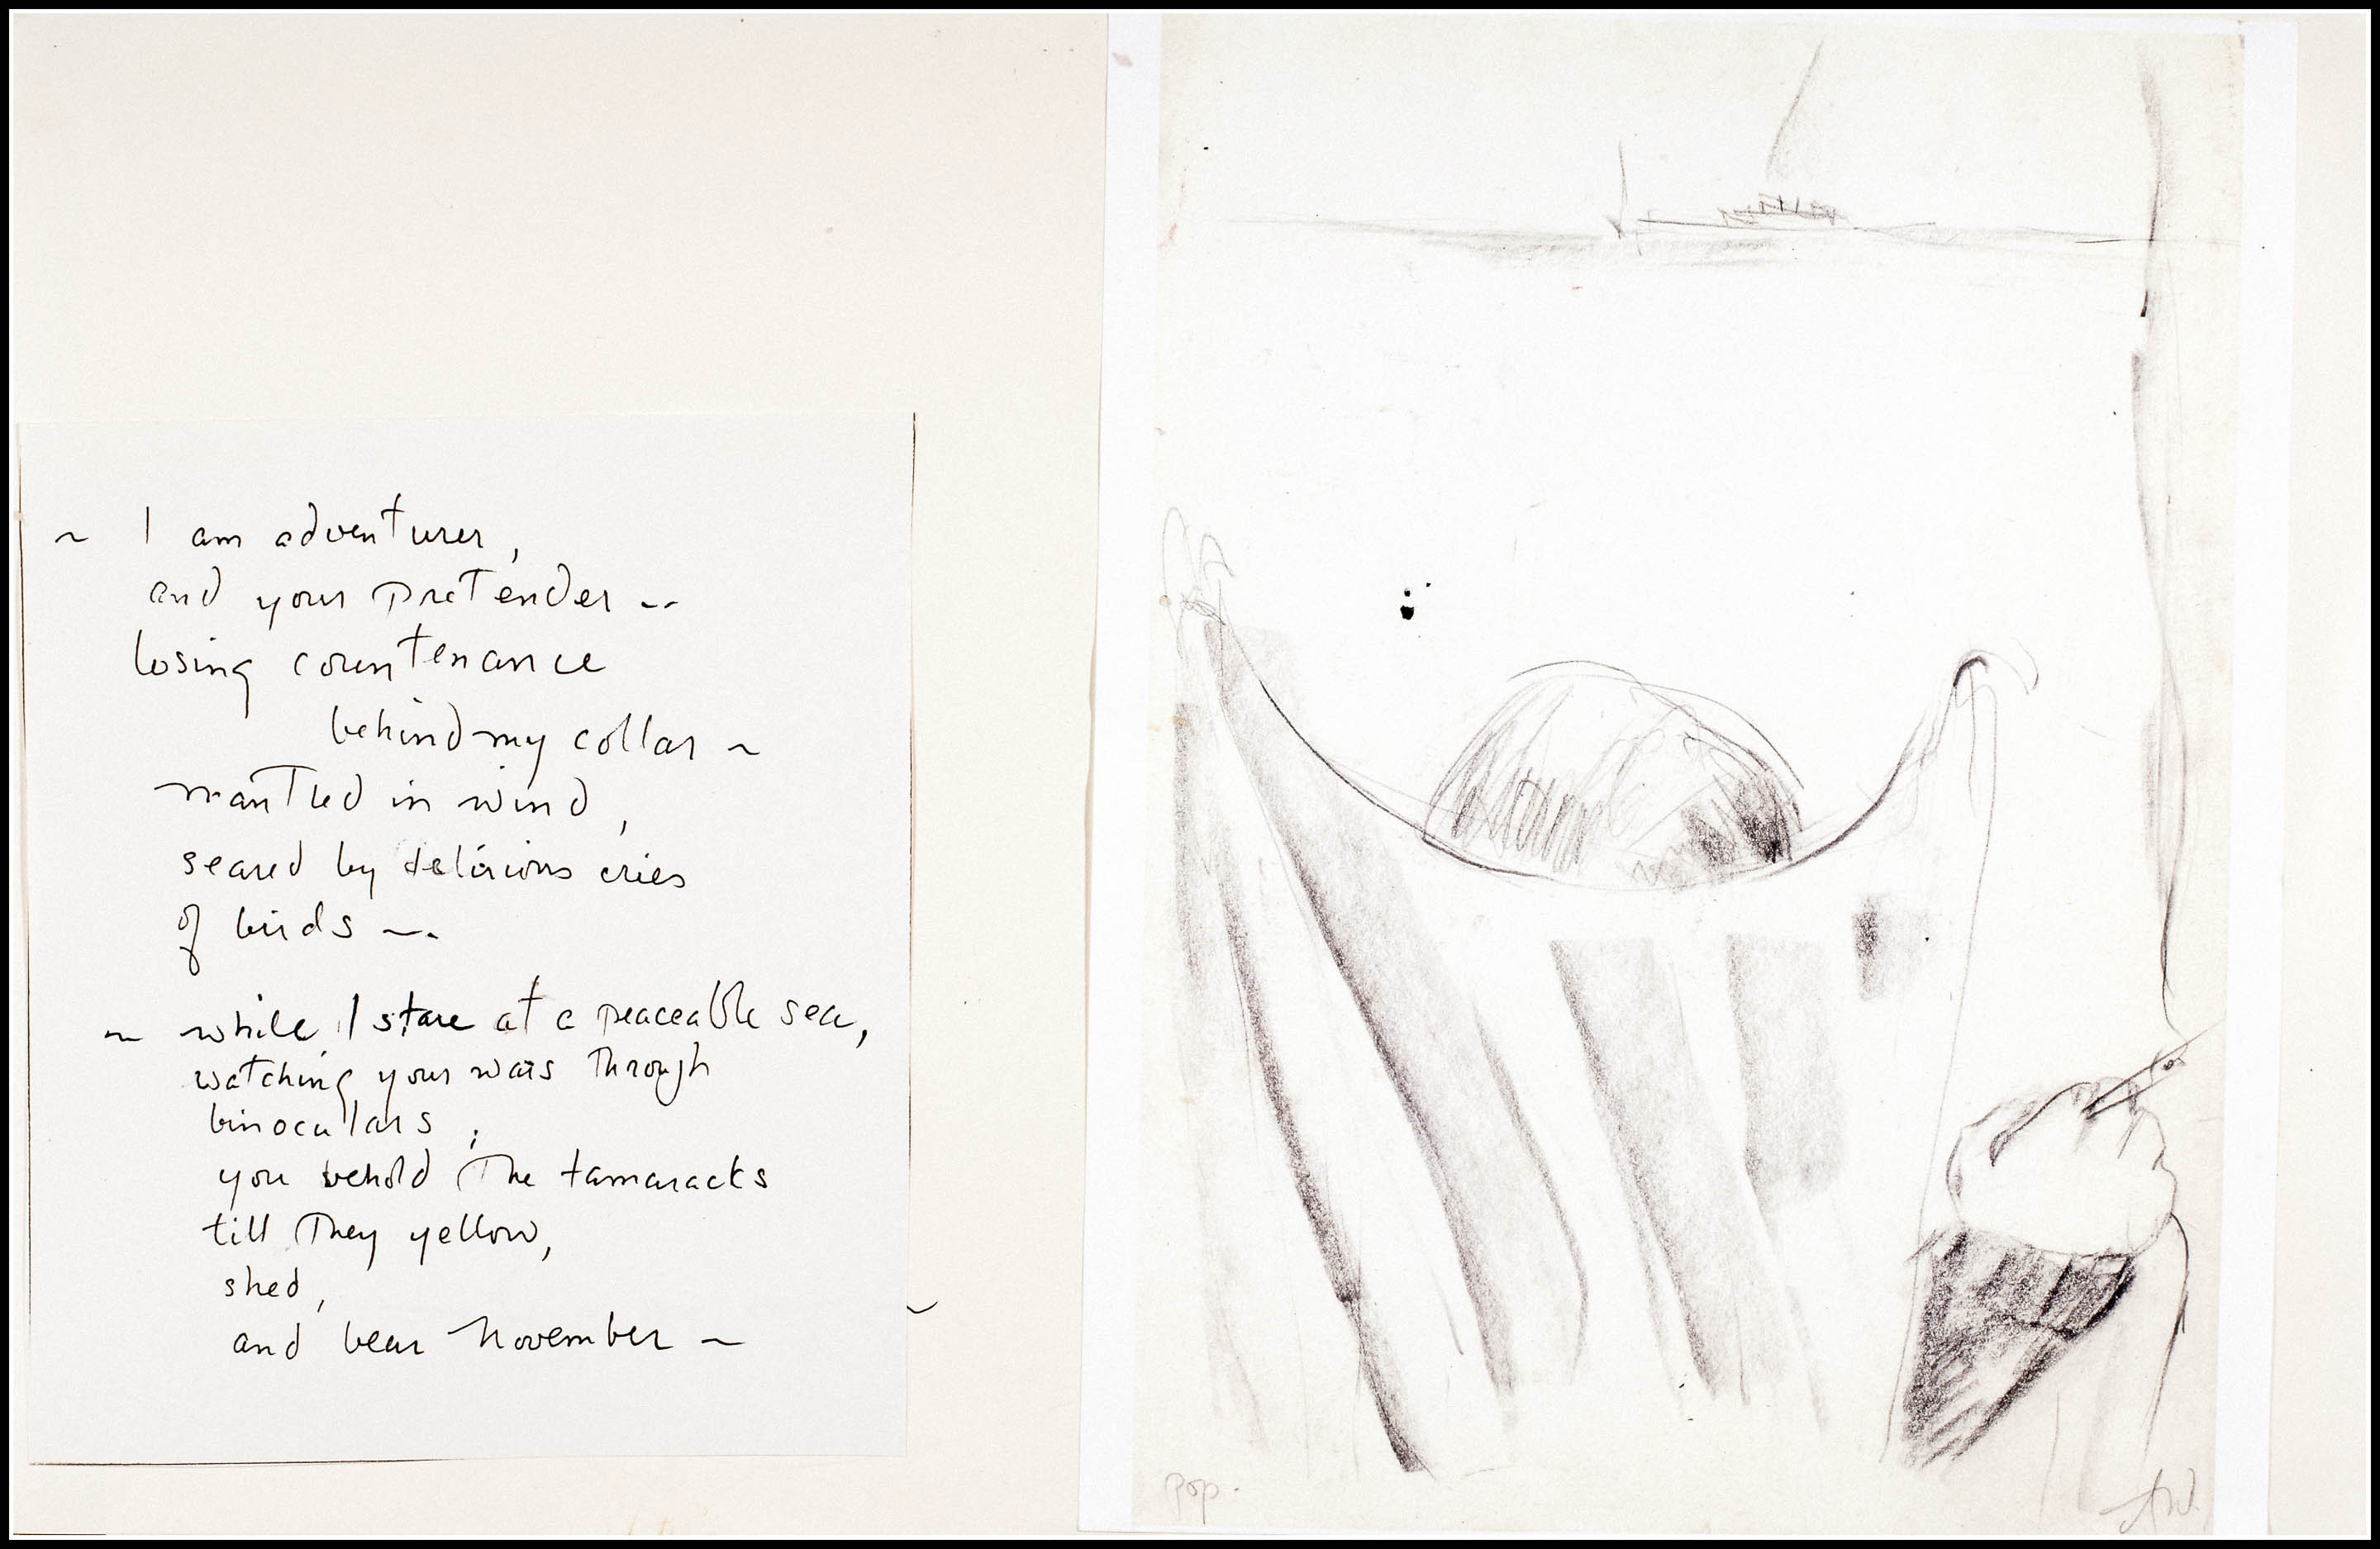 ~ I am adventurer,
and your pretender --
losing countenance
behind my collar ~
mantled in wind,
seared by delirious cries
of birds —.
~ while I stare at a peaceable sea,
watching your wars through
binoculars;
you behold the tamaracks
till they yellow,
shed,
and bear November ~
pop.